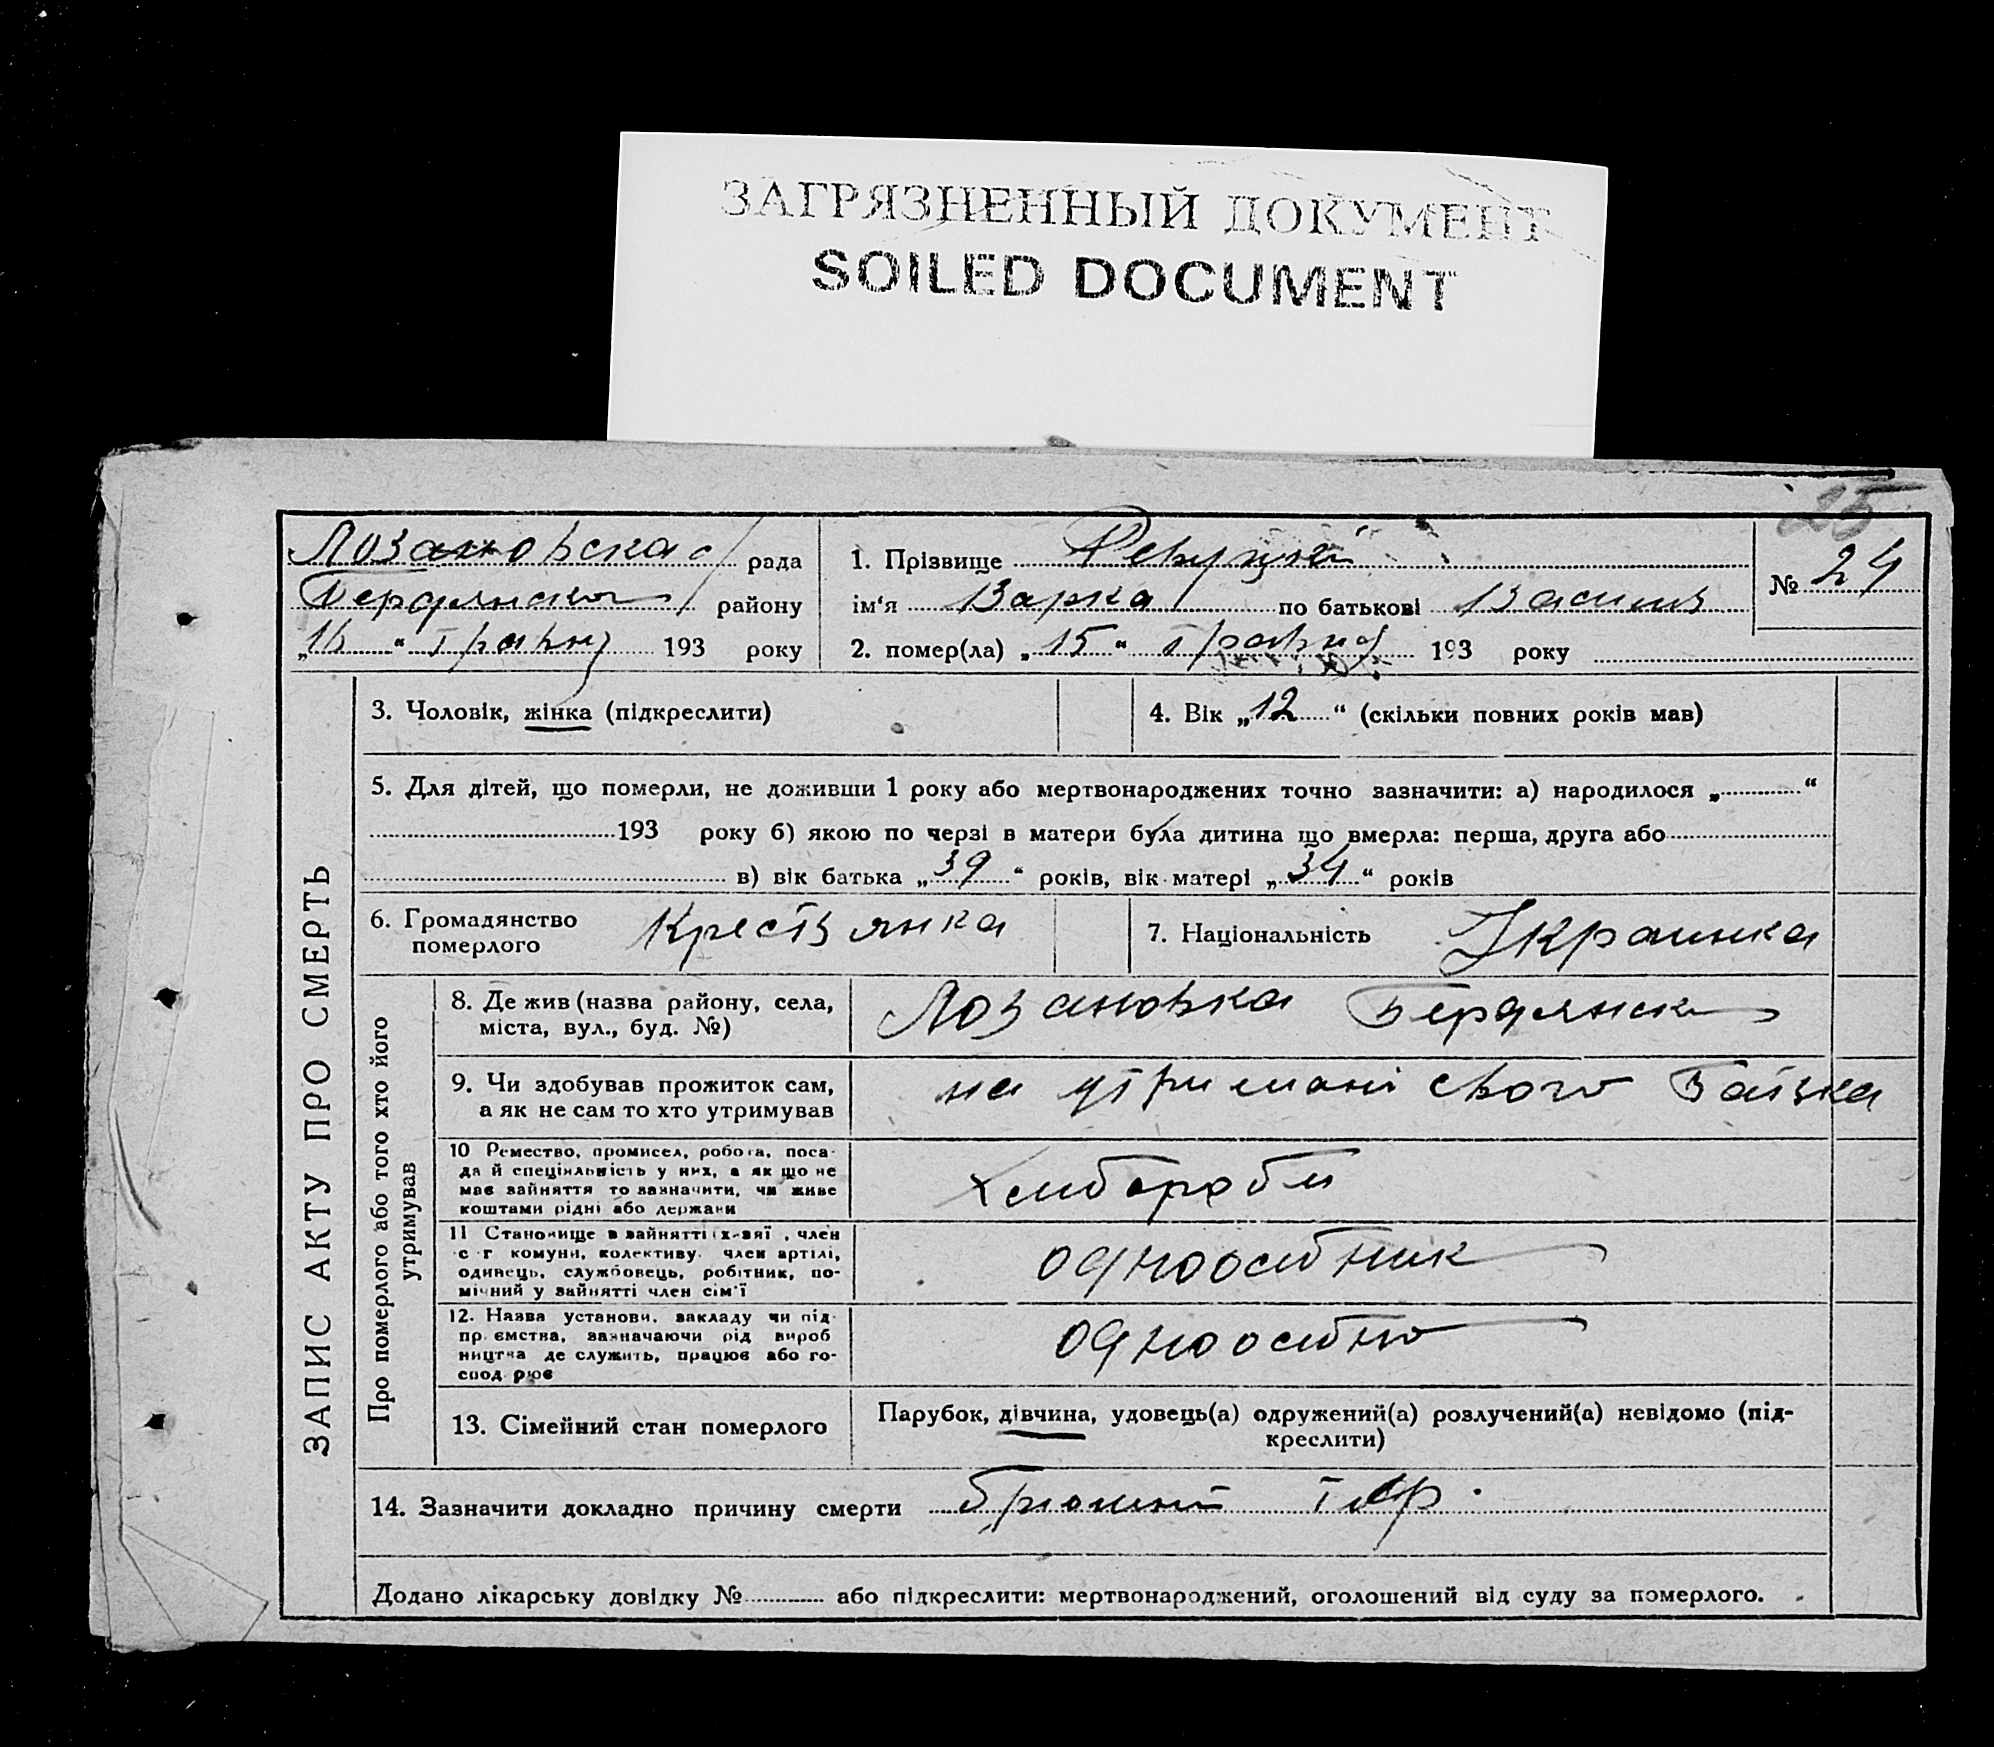 ЗАГРЯЗНЕННЫЙ ДОКУМЕНТ
SOILED DOCUMENT
25
Лозановска с/ рада
Бердянского району
"16" травня 193 року
1. Прізвище Ревуцкий
ім'я Варка по батькові Василів
2. помер(ла) "15" травня 193 року
№ 24
ЗАПИС АКТУ ПРО СМЕРТЬ
3. Чоловік, жінка (підкреслити)
4. Вік "12" (скільки повних років мав)
5. Для дітей, що померли, не доживши 1 року або мертвонароджених точно зазначити: а) народилося " "
193 року б) якою по черзі в матери була дитина що вмерла: перша, друга або
в) вік батька "39" років, вік матері "34" років
6. Громадянство
померлого Крестьянка
7. Національність Украинка
Про померлого або того хто його
утримував
8. Де жив (назва району, села,
міста, вул., буд. №)
Лозановка Бердянск
9. Чи здобував прожиток сам,
а як не сам то хто утримував
на утримані свого Батька
10 Ремество, промисел, робота, поса-
да й спеціяльність у них, а як що не
має зайняття то зазначити, чи живе
коштами рідні або держави
хлиборобы
11 Становище в зайнятті (х-зяї, член
с г комуни, колективу, член артілі,
одинець, службовець, робітник, по-
мічний у зайнятті член сім'ї
одноосибник
12. Назва установи, закладу чи під-
пр ємства, зазначаючи рід вироб
ництва де служить, працює або го-
спод рює
одноосибно
13. Сімейний стан померлого
Парубок, дівчина, удовець(а) одружений(а) розлучений(а) невідомо (під-
креслити)
14. Зазначити докладно причину смерти брюшний тиф.
Додано лікарську довідку № або підкреслити: мертвонароджений, оголошений від суду за померлого.